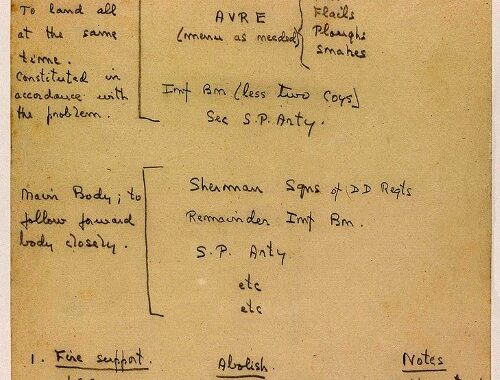 To land all
at the same
time.
Constituted in
accordance with
the problem.
AVRE
(menu as needed)
Flails
Ploughs
Snakes
Inf Bn (less two Coys)
Sec S.P. Arty.
Main Body; to
follow forward
body closely.
Sherman Sqns of DD Regts
Remainder Inf Bn.
S.P. Arty
etc
etc
1. Fire support.
Abolish.
Notes